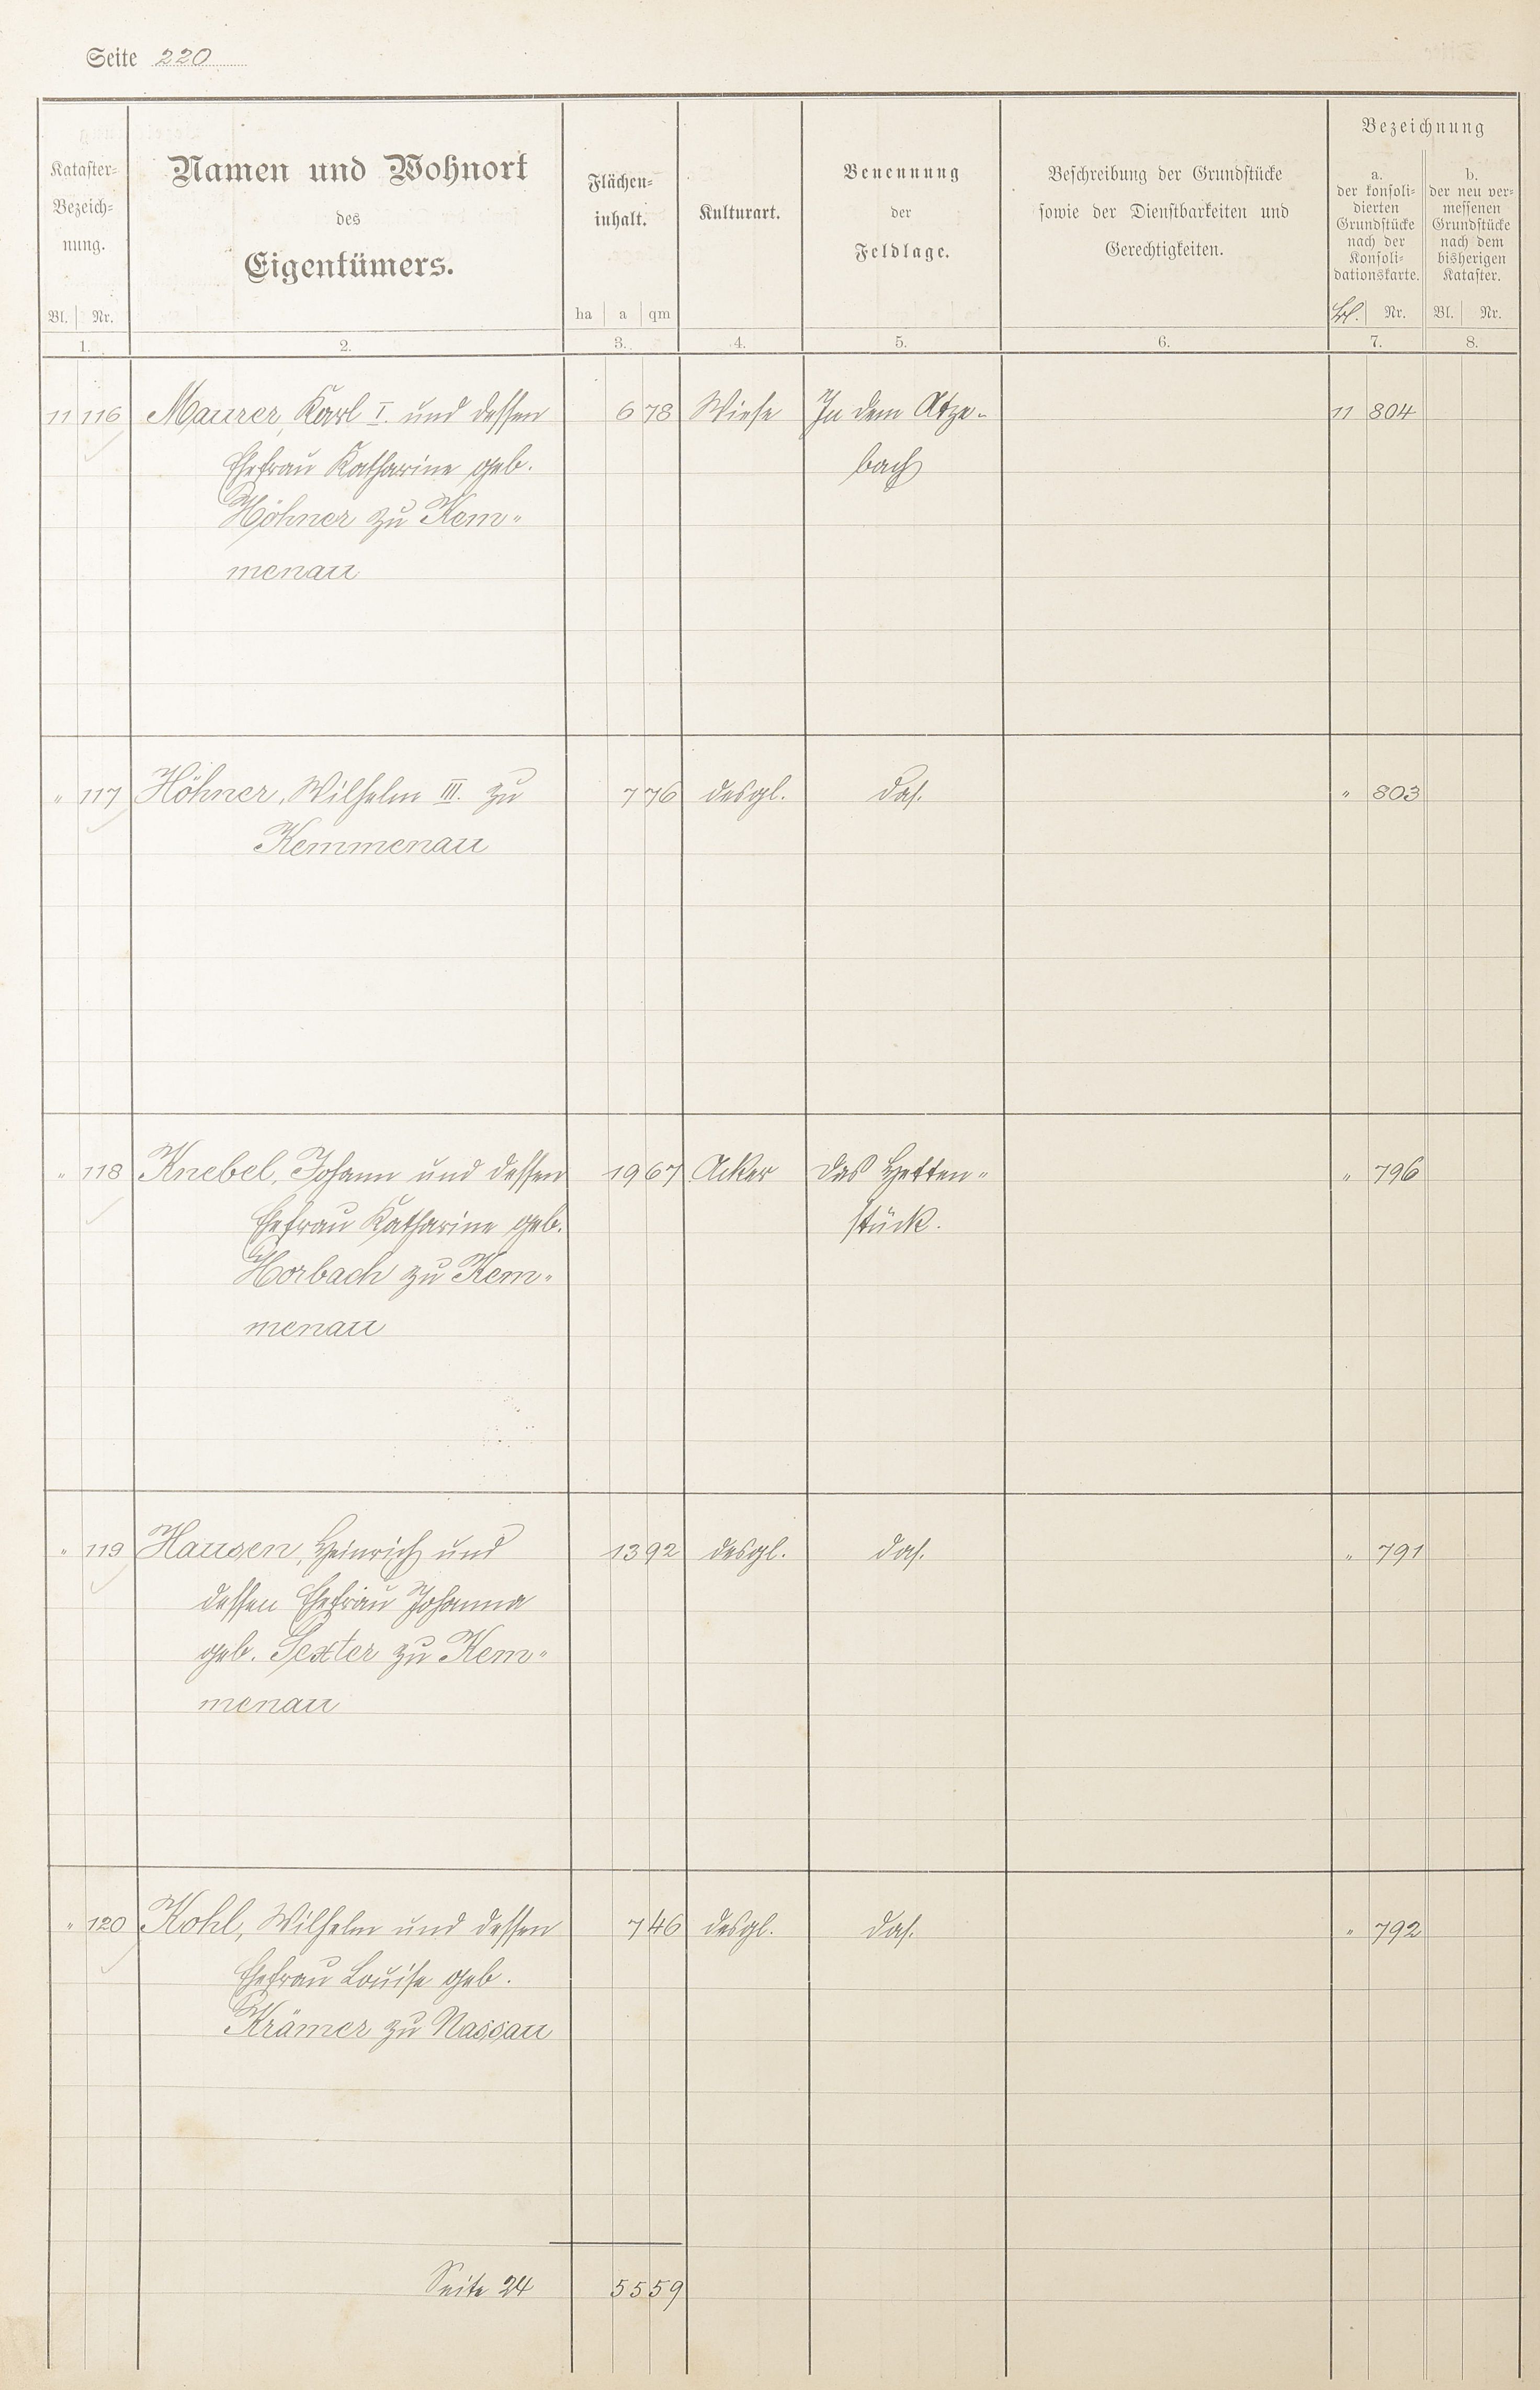 Seite 220
Kataster-
Bezeich-
nung.
Bl. Nr.
1.
Namen und Wohnort
des
Eigentümers.
2.
Flächen-
inhalt.
ha a qm
3.
Kulturart.
4.
Benennung
der
Feldlage.
5.
Beschreibung der Grundstücke
sowie der Dienstbarkeiten und
Gerechtigkeiten.
6.
Bezeichnung
a.
der konsoli-
dierten
Grundstücke
nach der
Konsoli-
dationskarte.
Bl. Nr.
7.
b.
der neu ver-
messenen
Grundstücke
nach dem
bisherigen
Kataster.
Bl. Nr.
8.
11 116 Maurer, Karl I. und dessen 6 78 Wiese In dem Atze- 11 804
Ehefrau Katharine geb. bach
Höhner zu Kem-
menau
" 117 Höhner, Wilhelm III. zu 7 76 desgl. das. " 803
Kemmenau
" 118 Knebel, Johann und dessen 19 67 Acker Das Hetten- " 796
Ehefrau Katharine geb. stück.
Horbach zu Kem-
menau
" 119 Hausen, Heinrich und 13 92 desgl. das. " 791
dessen Ehefrau Johanna
geb. Sexter zu Kem-
menau
" 120 Kohl, Wilhelm und dessen 7 46 desgl. das. " 792
Ehefrau Louise geb.
Krämer zu Nassau
Seite 24 55 59